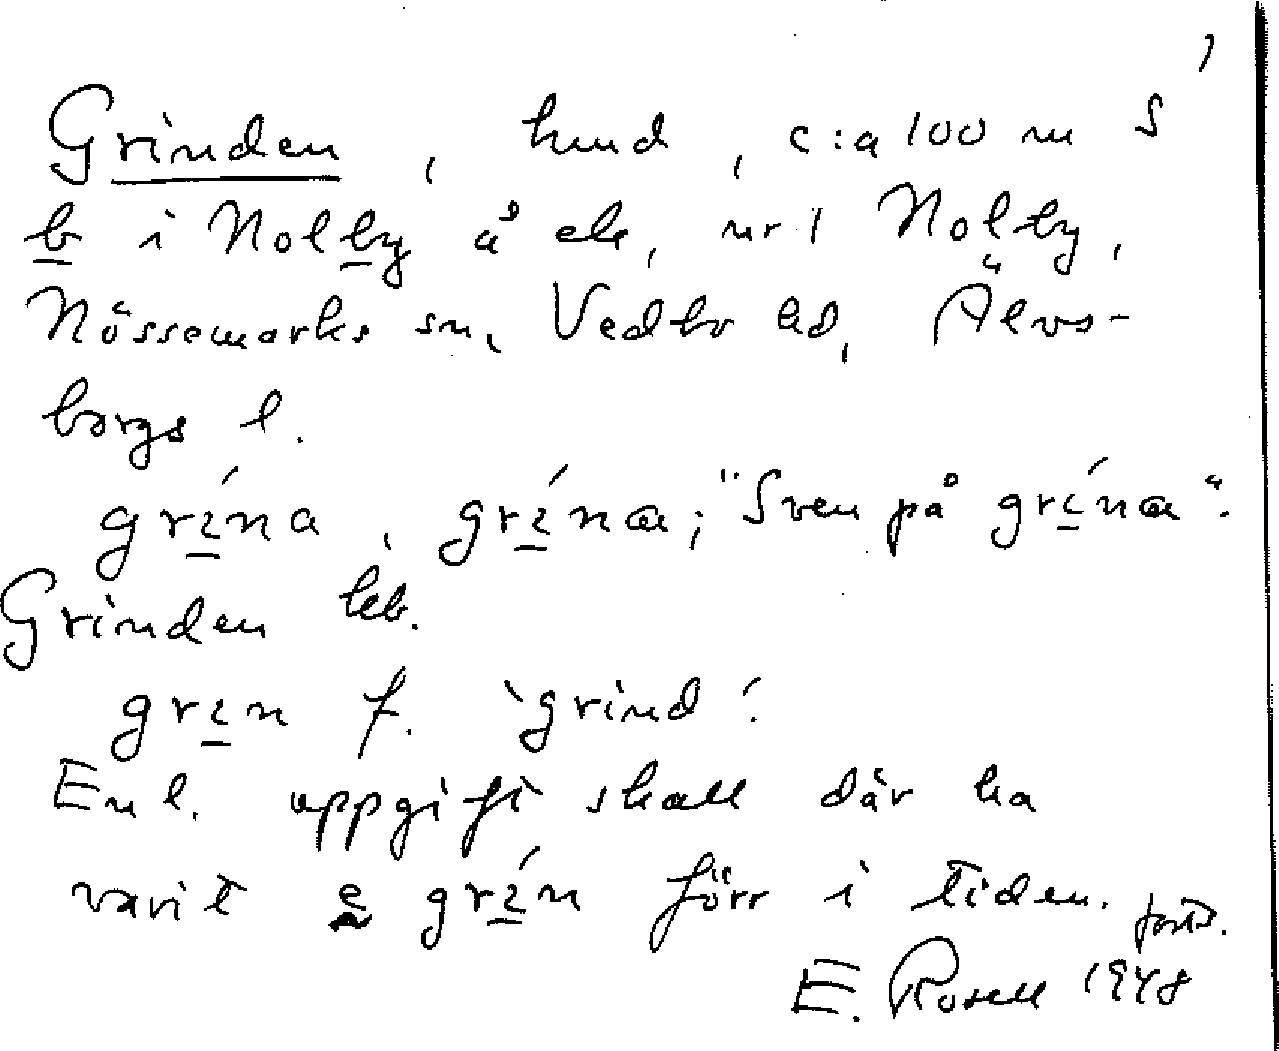 1
Grinden, hmd, c:a 100 m S
b i Nolby å ek, nr 1 Nolby,
Nössemarks sn, Vedbo hd, Älvs-
borgs l.
grɩ́na, grɩ́nɑ; "Sven på grɩ́nɑ".
Grinden hb.
grɩn f. 'grind'.
Enl. uppgift skall där ha
varit grɩ́n förr i tiden. forts.
E. Rosell 1948